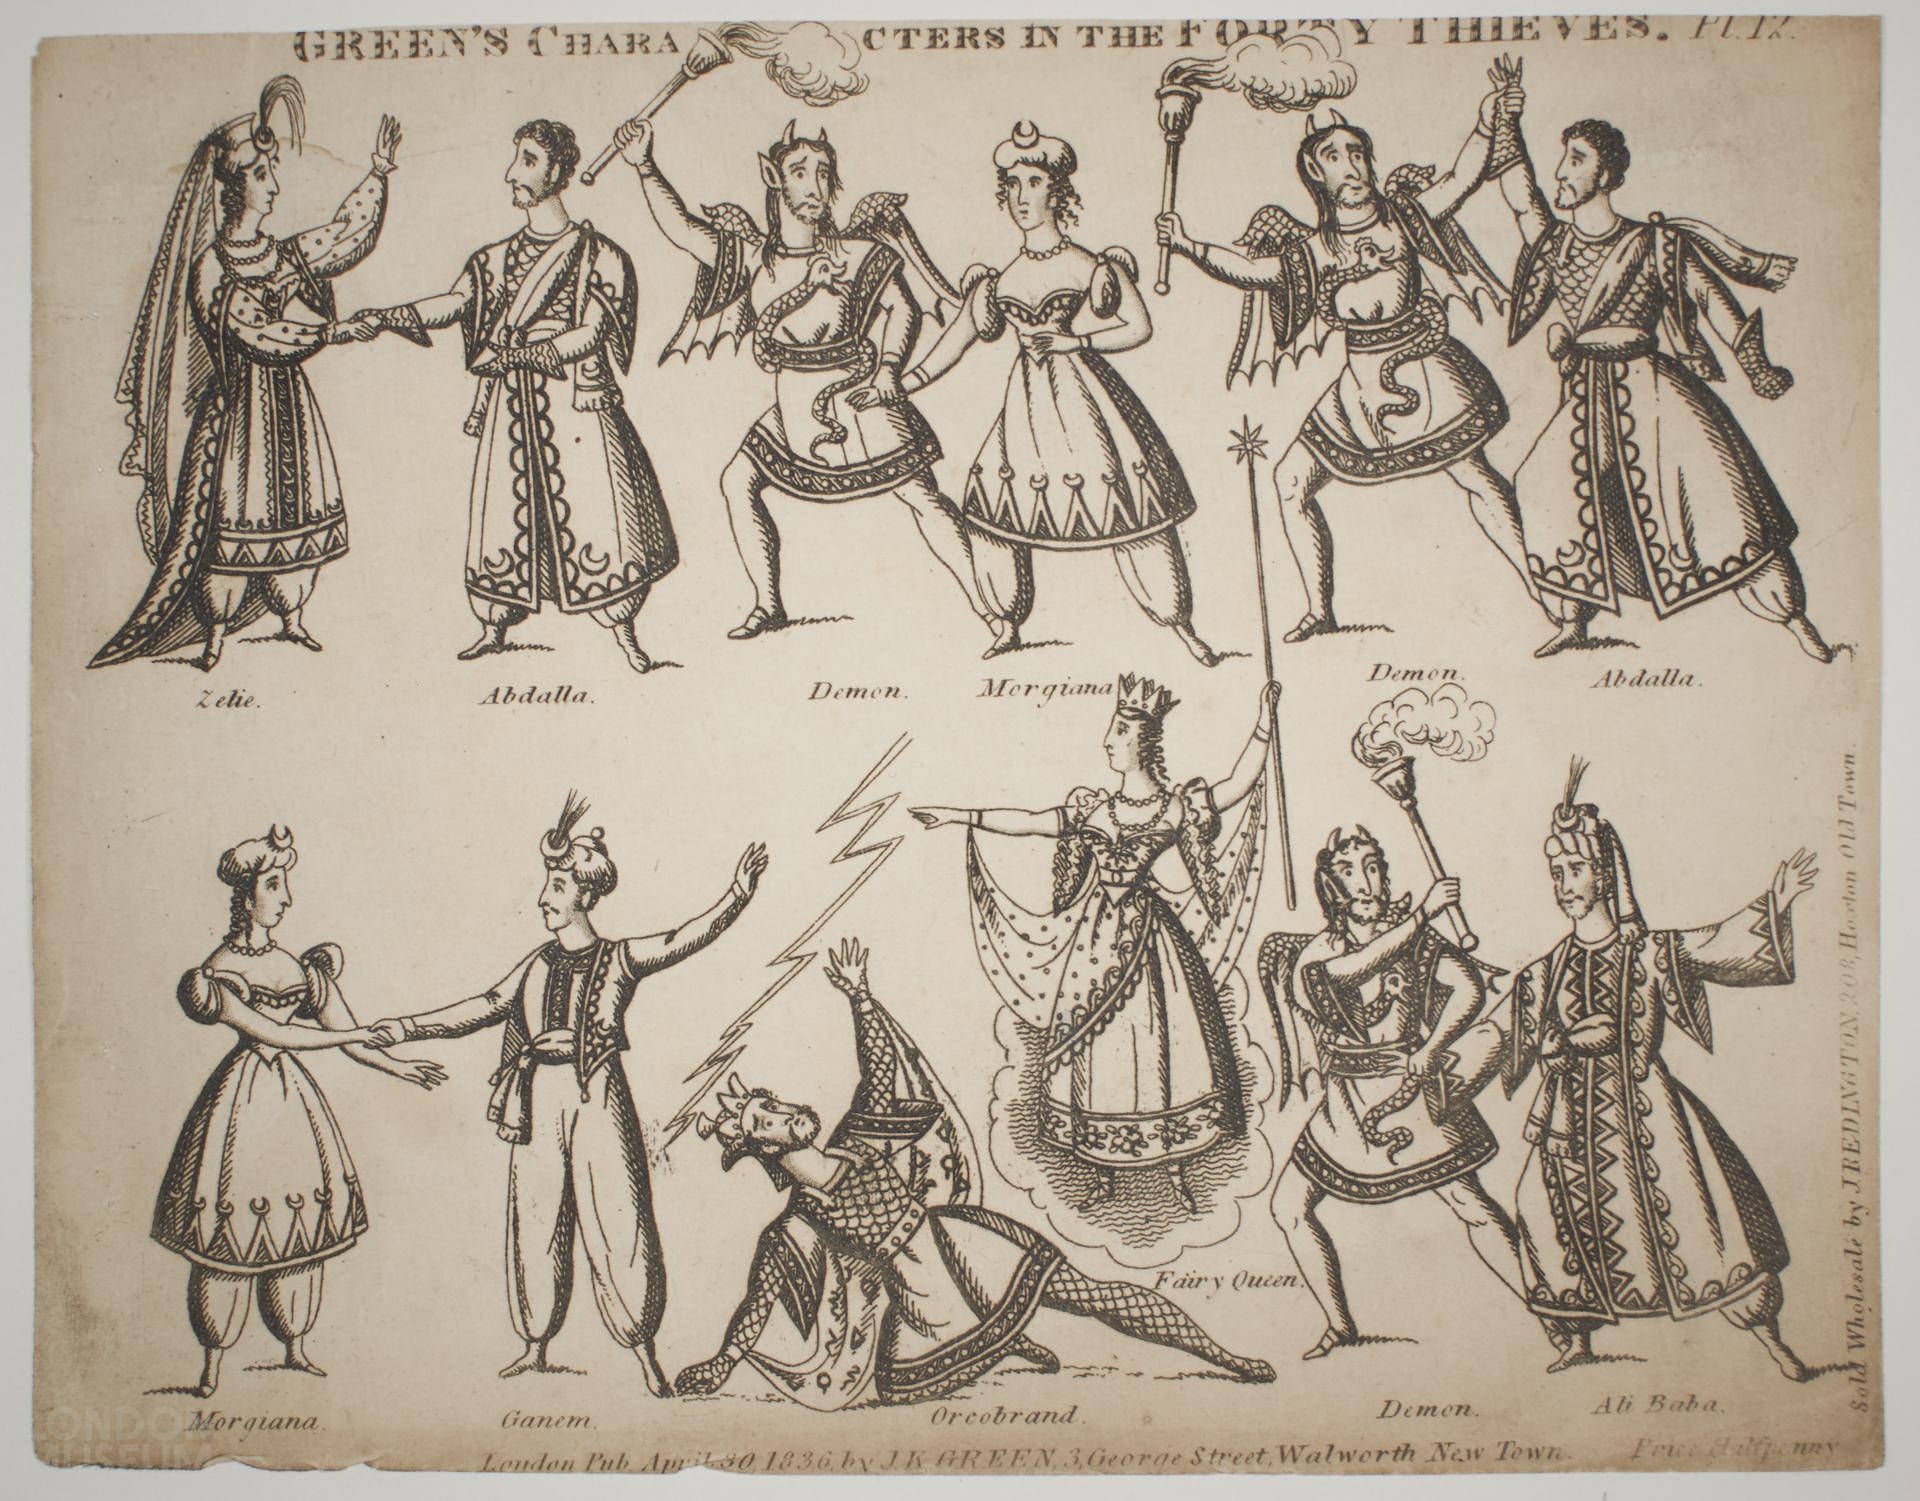 GREEN'S CHARACTERS IN THE FORTY THIEVES. Pl. 12.
Zelie.
Abdalla.
Demon.
Morgiana
Demon.
Abdalla.
Fairy Queen.
Morgiana.
Ganem.
Orcobrand.
Demon.
Ali Baba.
London Pub. April 30, 1836, by J.K. GREEN, 3, George Street, Walworth New Town. Price Halfpenny
Sold Wholesale by J. REDINGTON, 208, Hoxton Old Town.
LONDON
MUSEUM